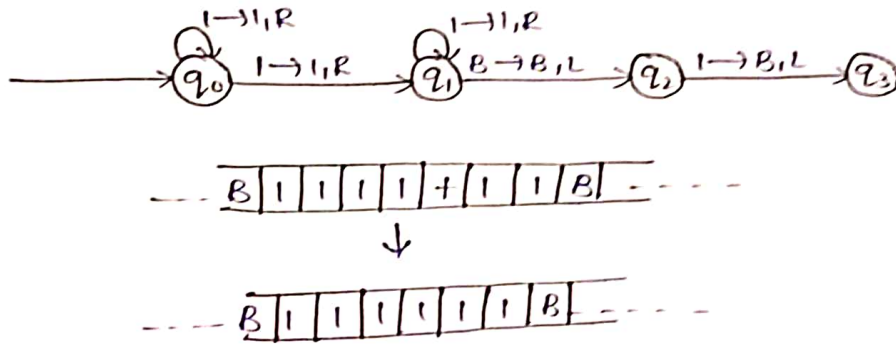 1→1,R 1→1,R
q₀ 1→1,R q₁ B→B,L q₂ 1→B,L q₃
B 1 1 1 1 + 1 1 B
↓
B 1 1 1 1 1 1 B